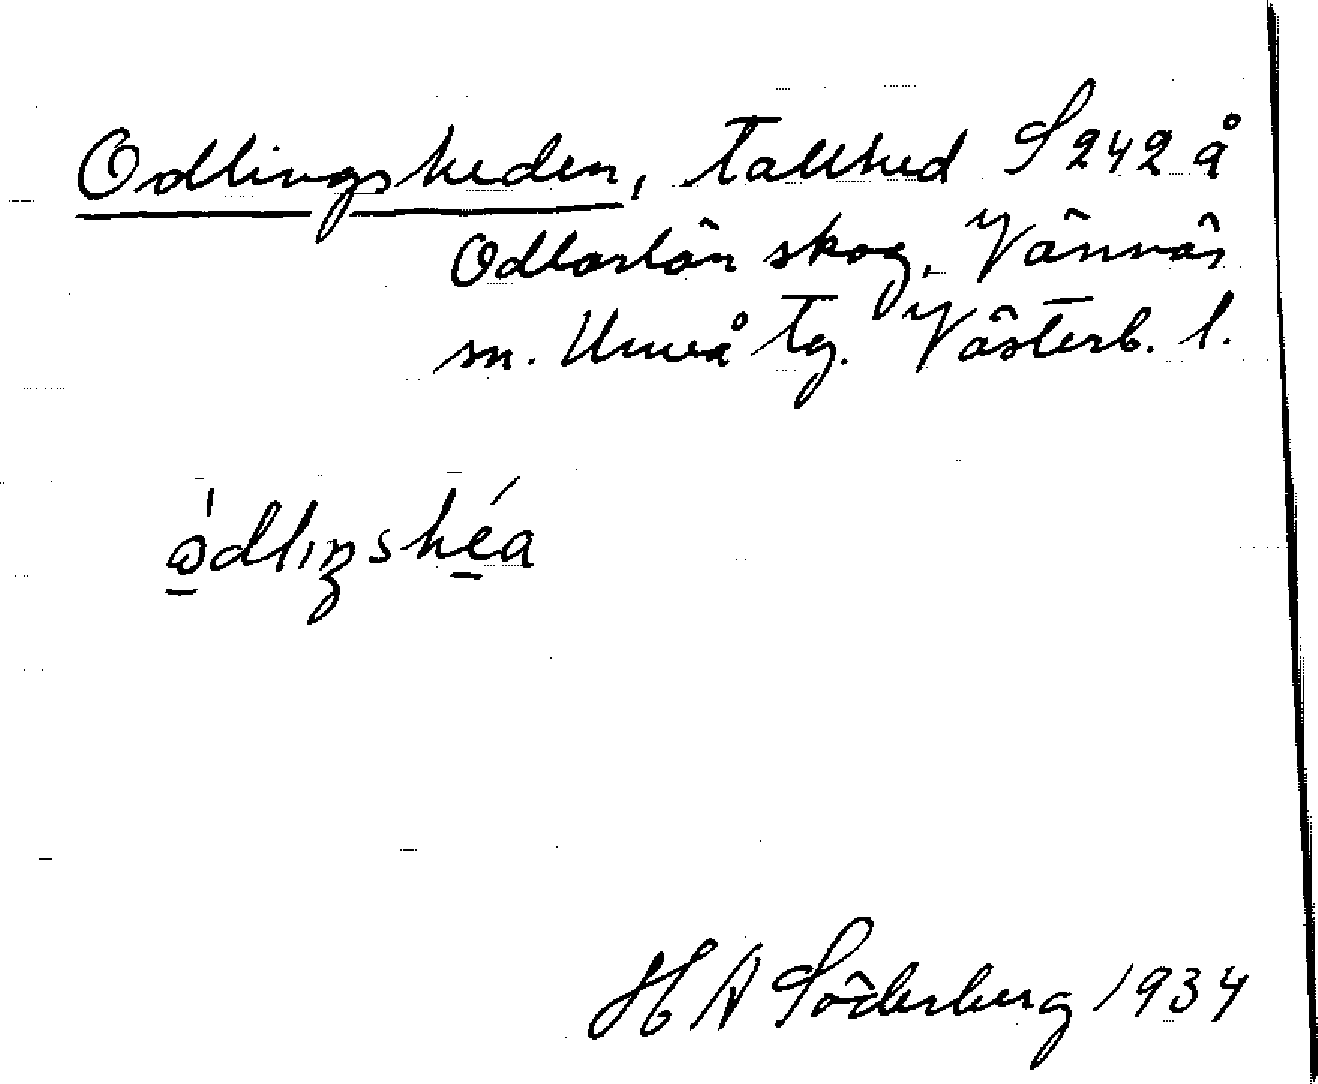 Odlingsheden, tallhed S 242 å
Odlarlän skog, Vännäs
sn. Umeå tg. Västerb. l.
ò̱dlıŋshé̱a
H A Söderberg 1934